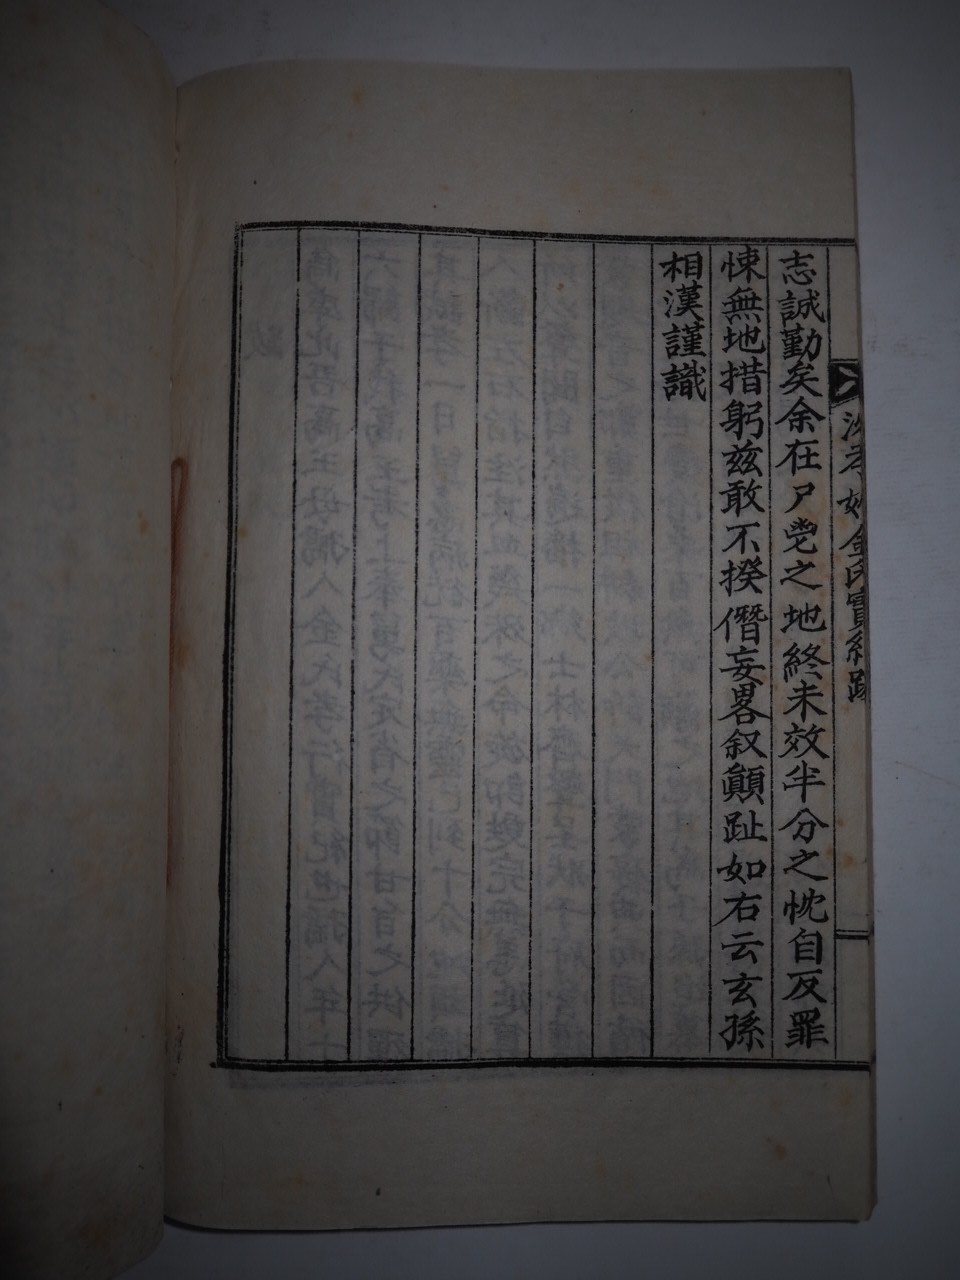 志誠勤矣余在尸甍之地終未效半分之忱自反罪
悚無地措躬玆敢不揆僭妄畧叙顛趾如右云玄孫
相漢謹識
孝妣金氏實紀跋